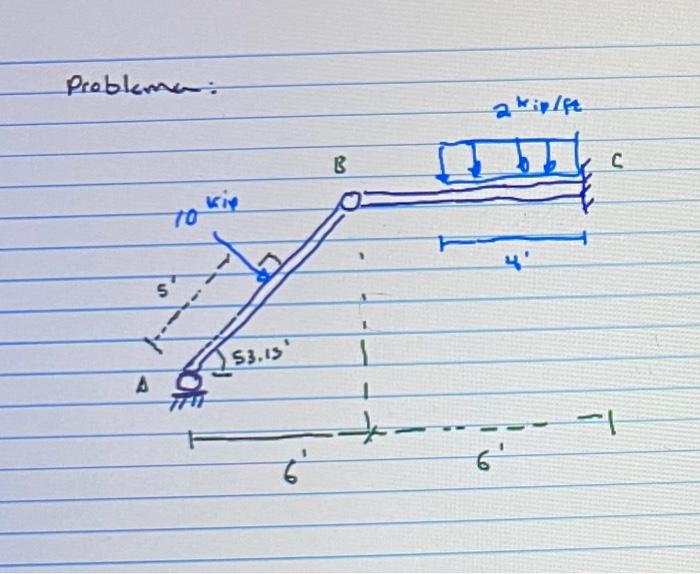 Problema:
2 kip/ft
B
C
10 kip
4'
5'
53.13°
A
6'
6'